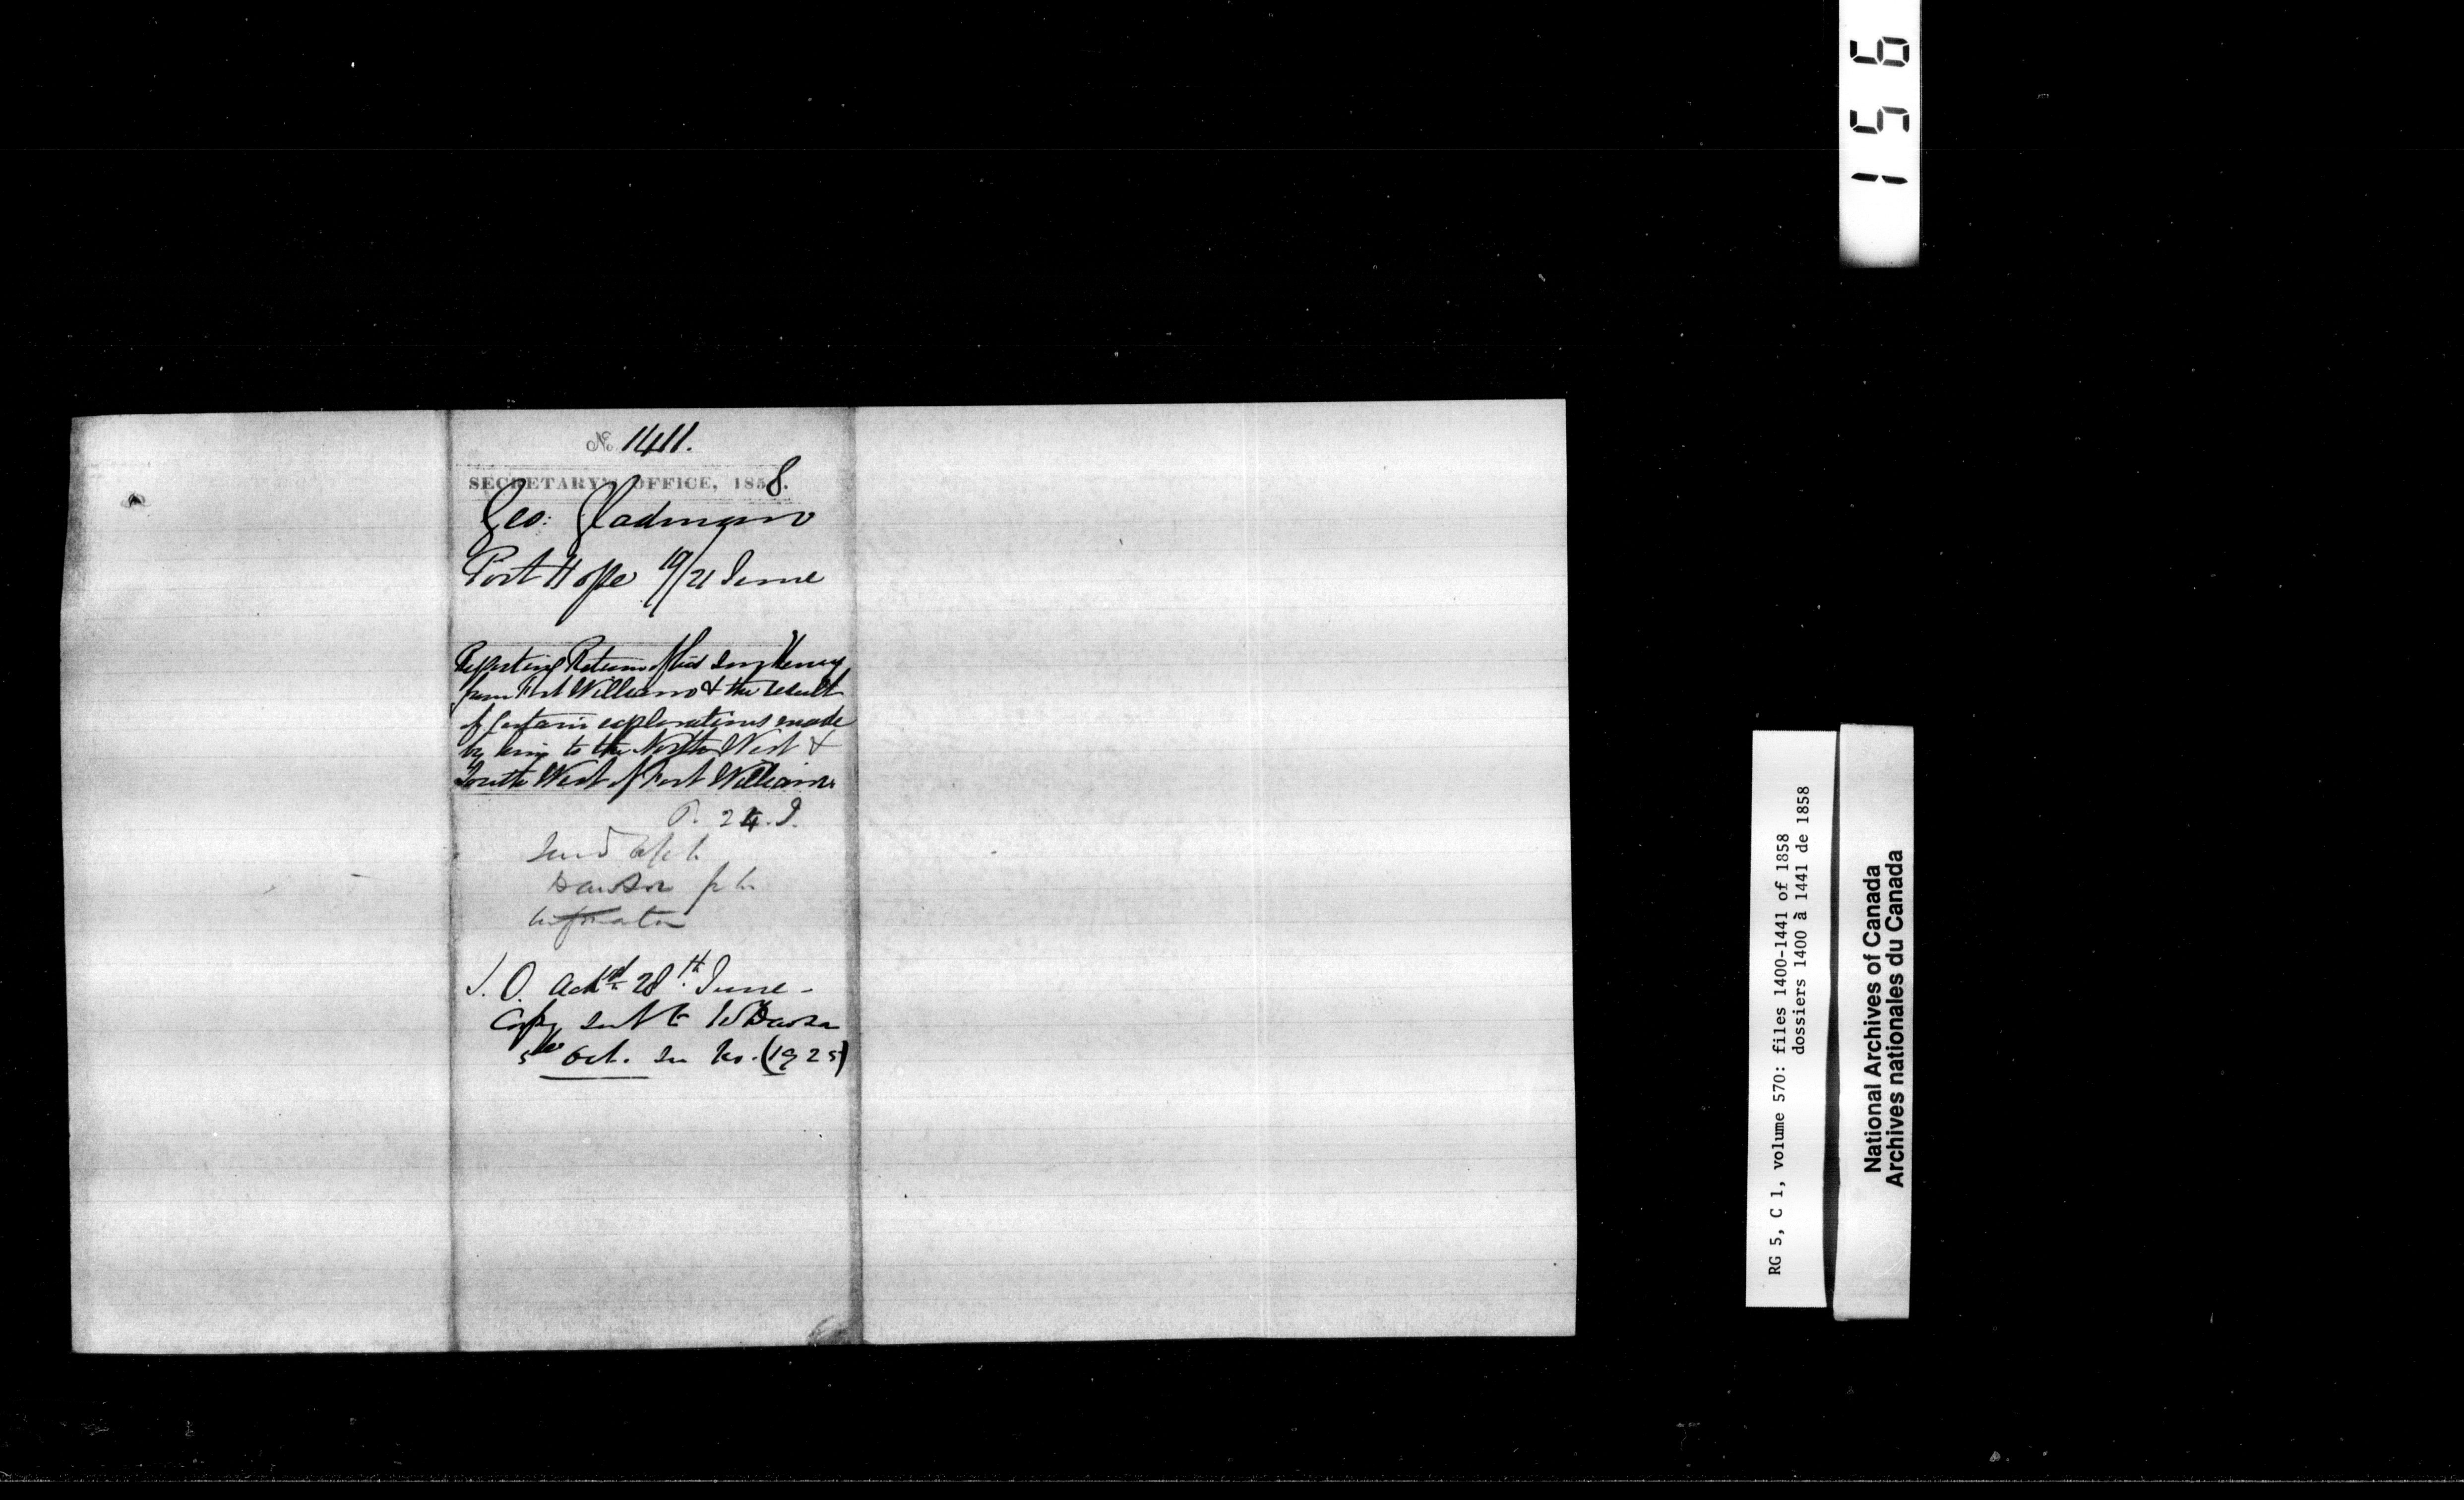 No. 1411.
SECRETARY'S OFFICE, 1858.
Geo: Gladman
Port Hope 19/21 June
Reporting Return of his son Henry
from Fort William & the result
of certain explorations made
by him to the North West &
South West of Fort William
P. 24. J.
Send
Dawson for
information
ackd 28th June -
Copy sent to Dawson
5th Oct. see No. (1925)
156
RG 5, C 1, volume 570: files 1400-1441 of 1858
dossiers 1400 à 1441 de 1858
National Archives of Canada
Archives nationales du Canada